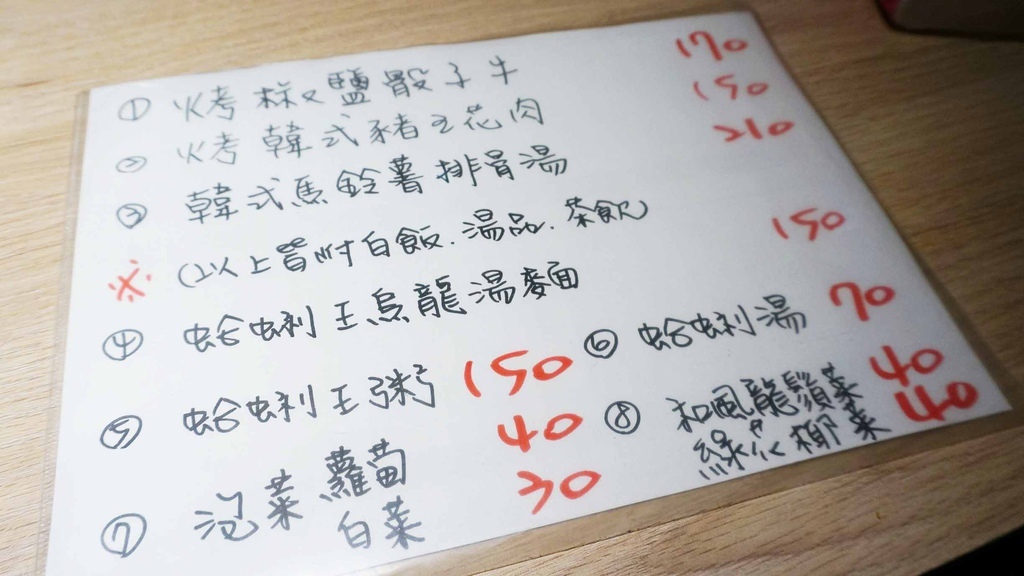 ① 火烤椒鹽骰子牛 170
② 火烤韓式豬五花肉 150
③ 韓式馬鈴薯排骨湯 210
※ (以上皆附白飯.湯品.茶飲)
④ 蛤蜊王烏龍湯麵 150
⑤ 蛤蜊王粥 150 ⑥ 蛤蜊湯 70
⑦ 泡菜 蘿蔔 40
白菜 30
⑧ 和風龍鬚菜 40
綠水椰菜 40